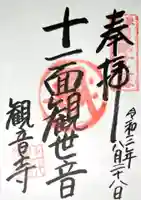 奉拝
令和二年
八月二十八日
十一面観世音
観音寺